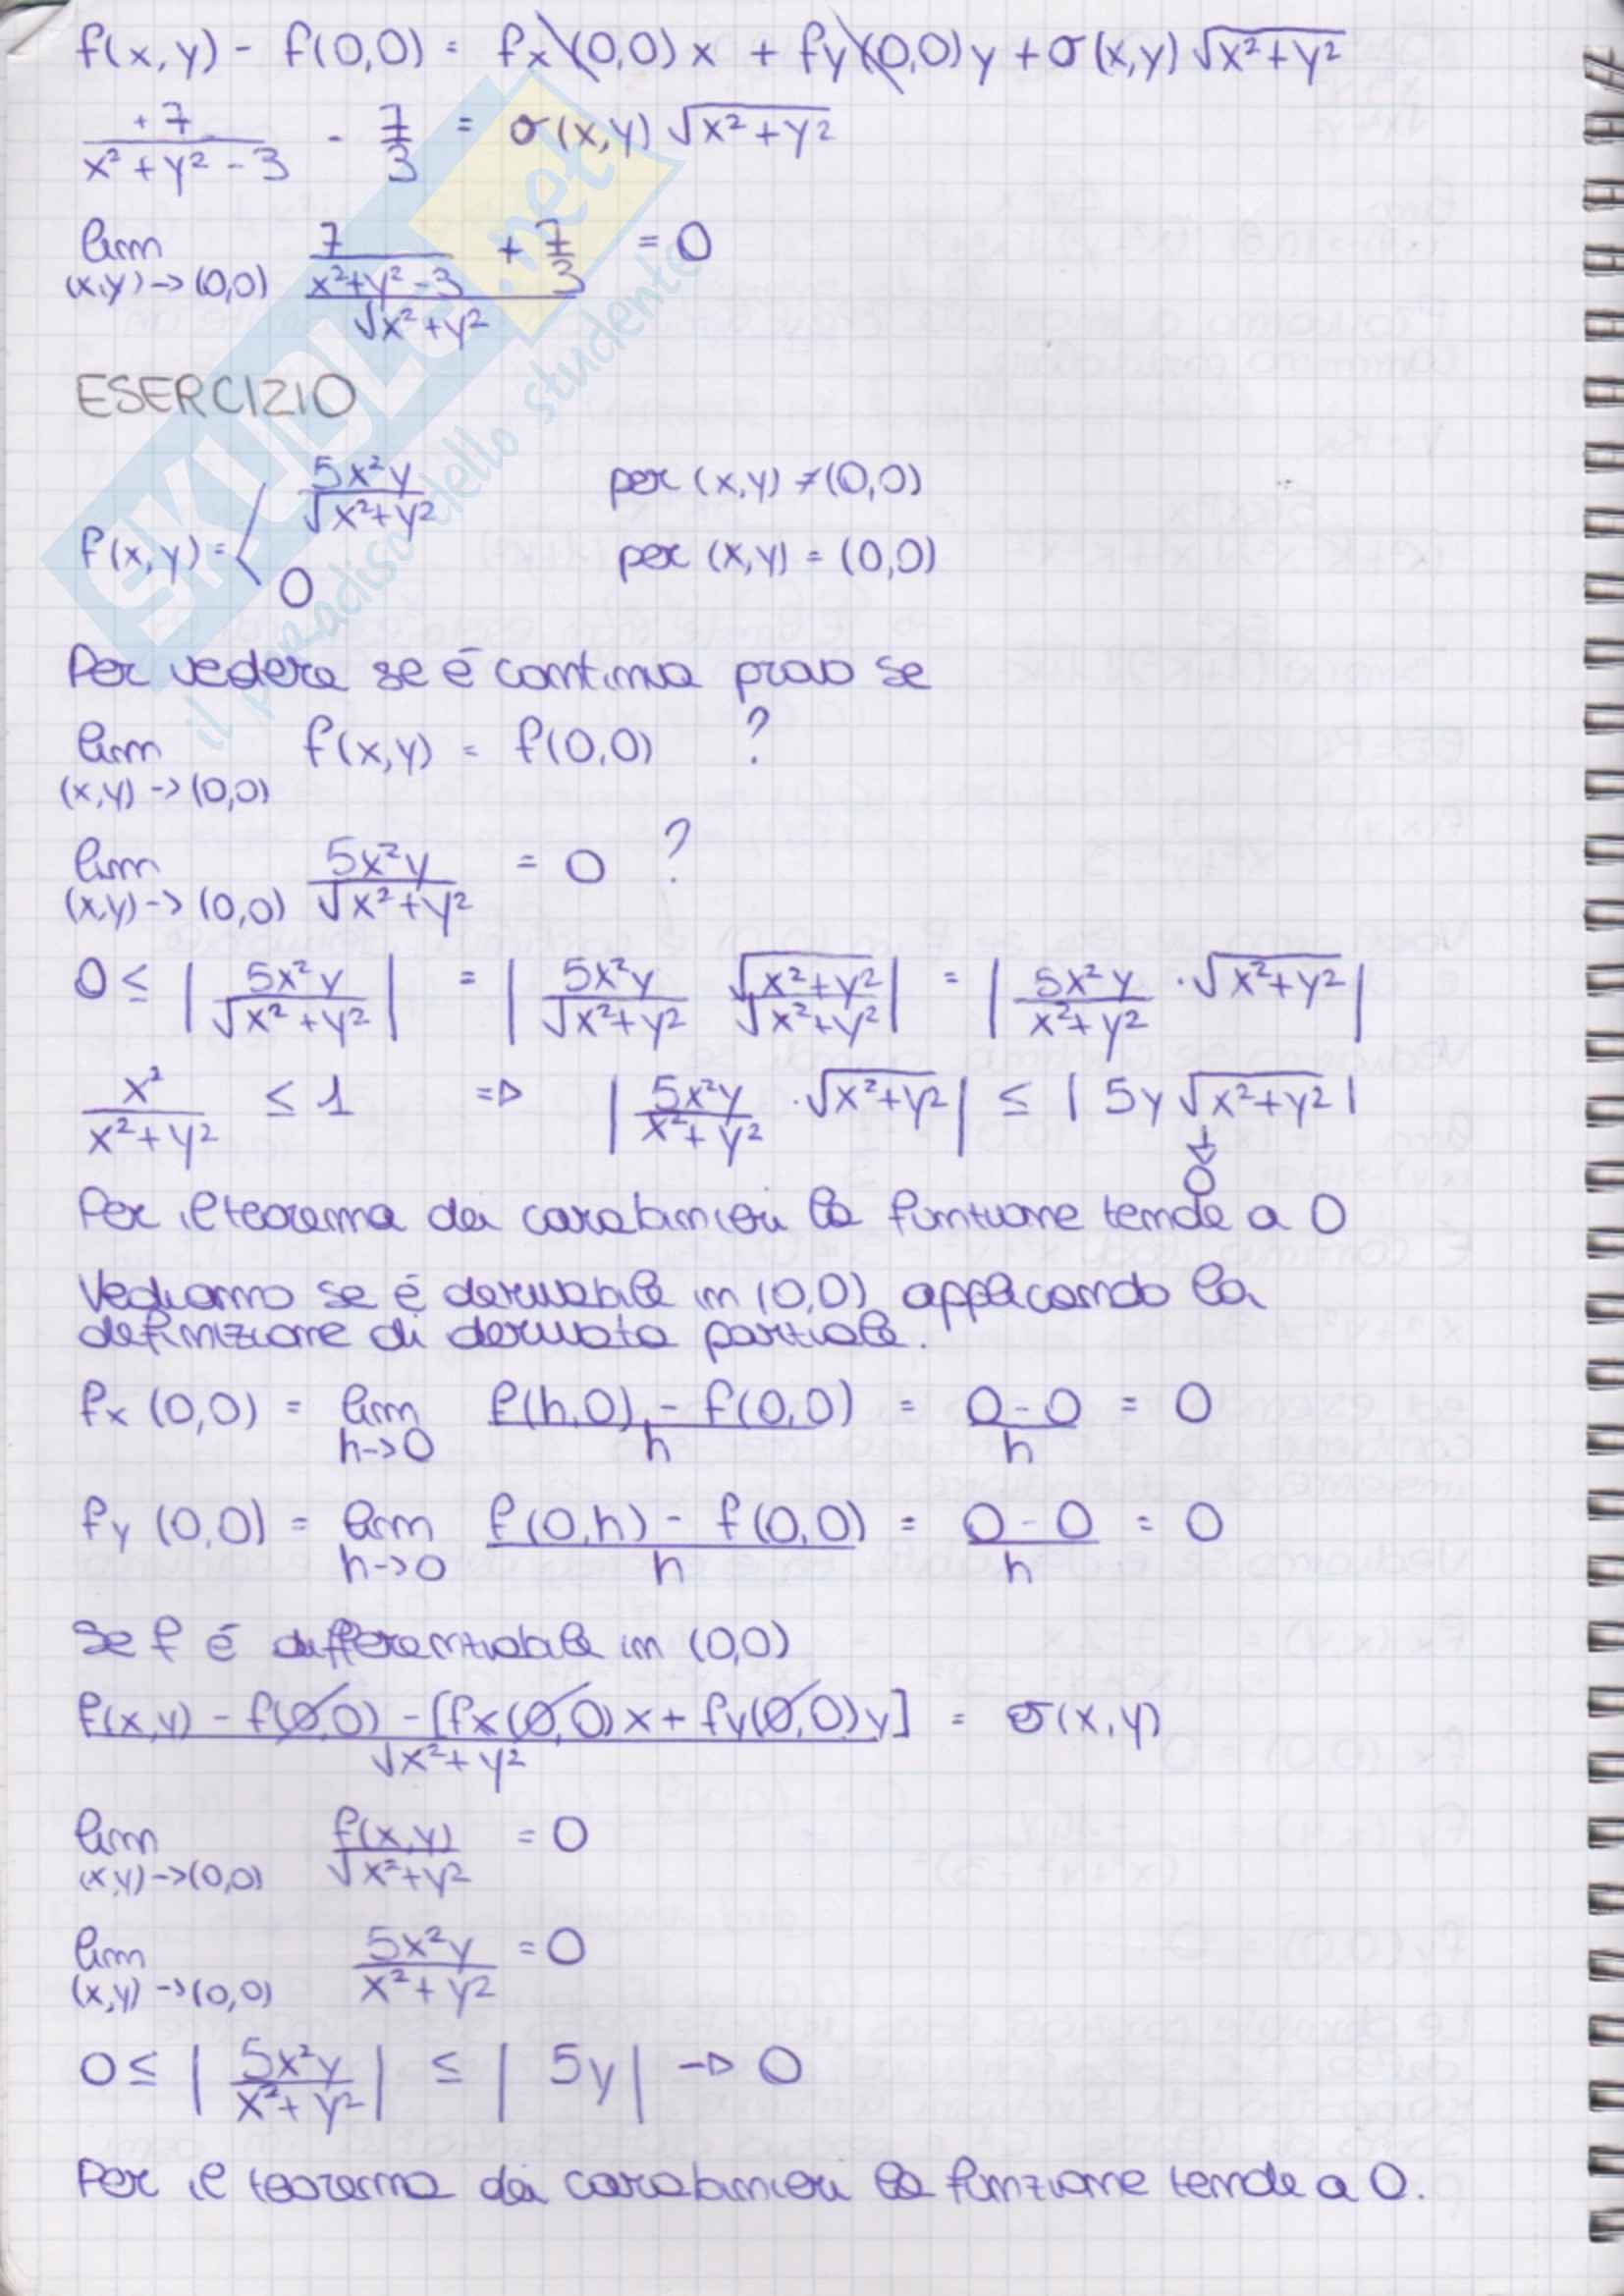 f(x,y) - f(0,0) = fx(0,0)x + fy(0,0)y + σ(x,y) √x²+y²
+7/(x²+y²-3) - 7/3 = σ(x,y) √x²+y²
lim (x,y)->(0,0) (7/(x²+y²-3) + 7/3)/√x²+y² = 0
ESERCIZIO
f(x,y) = { 5x²y/√x²+y² per (x,y) ≠ (0,0)
0 per (x,y) = (0,0)
Per vedere se é continua provo se
lim (x,y)->(0,0) f(x,y) = f(0,0) ?
lim (x,y)->(0,0) 5x²y/√x²+y² = 0 ?
0 ≤ | 5x²y/√x²+y² | = | 5x²y/√x²+y² √x²+y²/√x²+y² | = | 5x²y/(x²+y²) · √x²+y² |
x²/(x²+y²) ≤ 1 => | 5x²y/(x²+y²) · √x²+y² | ≤ | 5y √x²+y² |
↓
0
Per il teorema dei carabinieri la funzione tende a 0
Vediamo se é derivabile in (0,0) applicando la
definizione di derivata parziale.
fx (0,0) = lim h->0 (f(h,0) - f(0,0))/h = (0-0)/h = 0
fy (0,0) = lim h->0 (f(0,h) - f(0,0))/h = (0-0)/h = 0
Se f é differenziabile in (0,0)
(f(x,y) - f(0,0) - [fx(0,0)x + fy(0,0)y])/√x²+y² = σ(x,y)
lim (x,y)->(0,0) f(x,y)/√x²+y² = 0
lim (x,y)->(0,0) 5x²y/(x²+y²) = 0
0 ≤ | 5x²y/(x²+y²) | ≤ | 5y | -> 0
Per il teorema dei carabinieri la funzione tende a 0.
SKUOLA.net
il paradiso dello studente